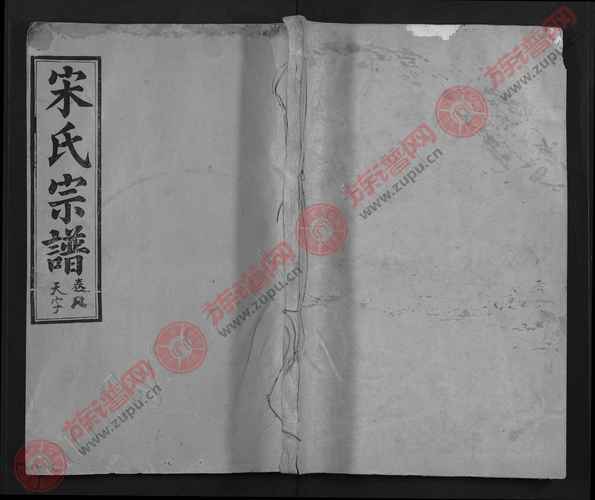 宋氏宗譜
天字
族谱网
www.zupu.cn
族谱网
www.zupu.cn
族谱网
www.zupu.cn
族谱网
www.zupu.cn